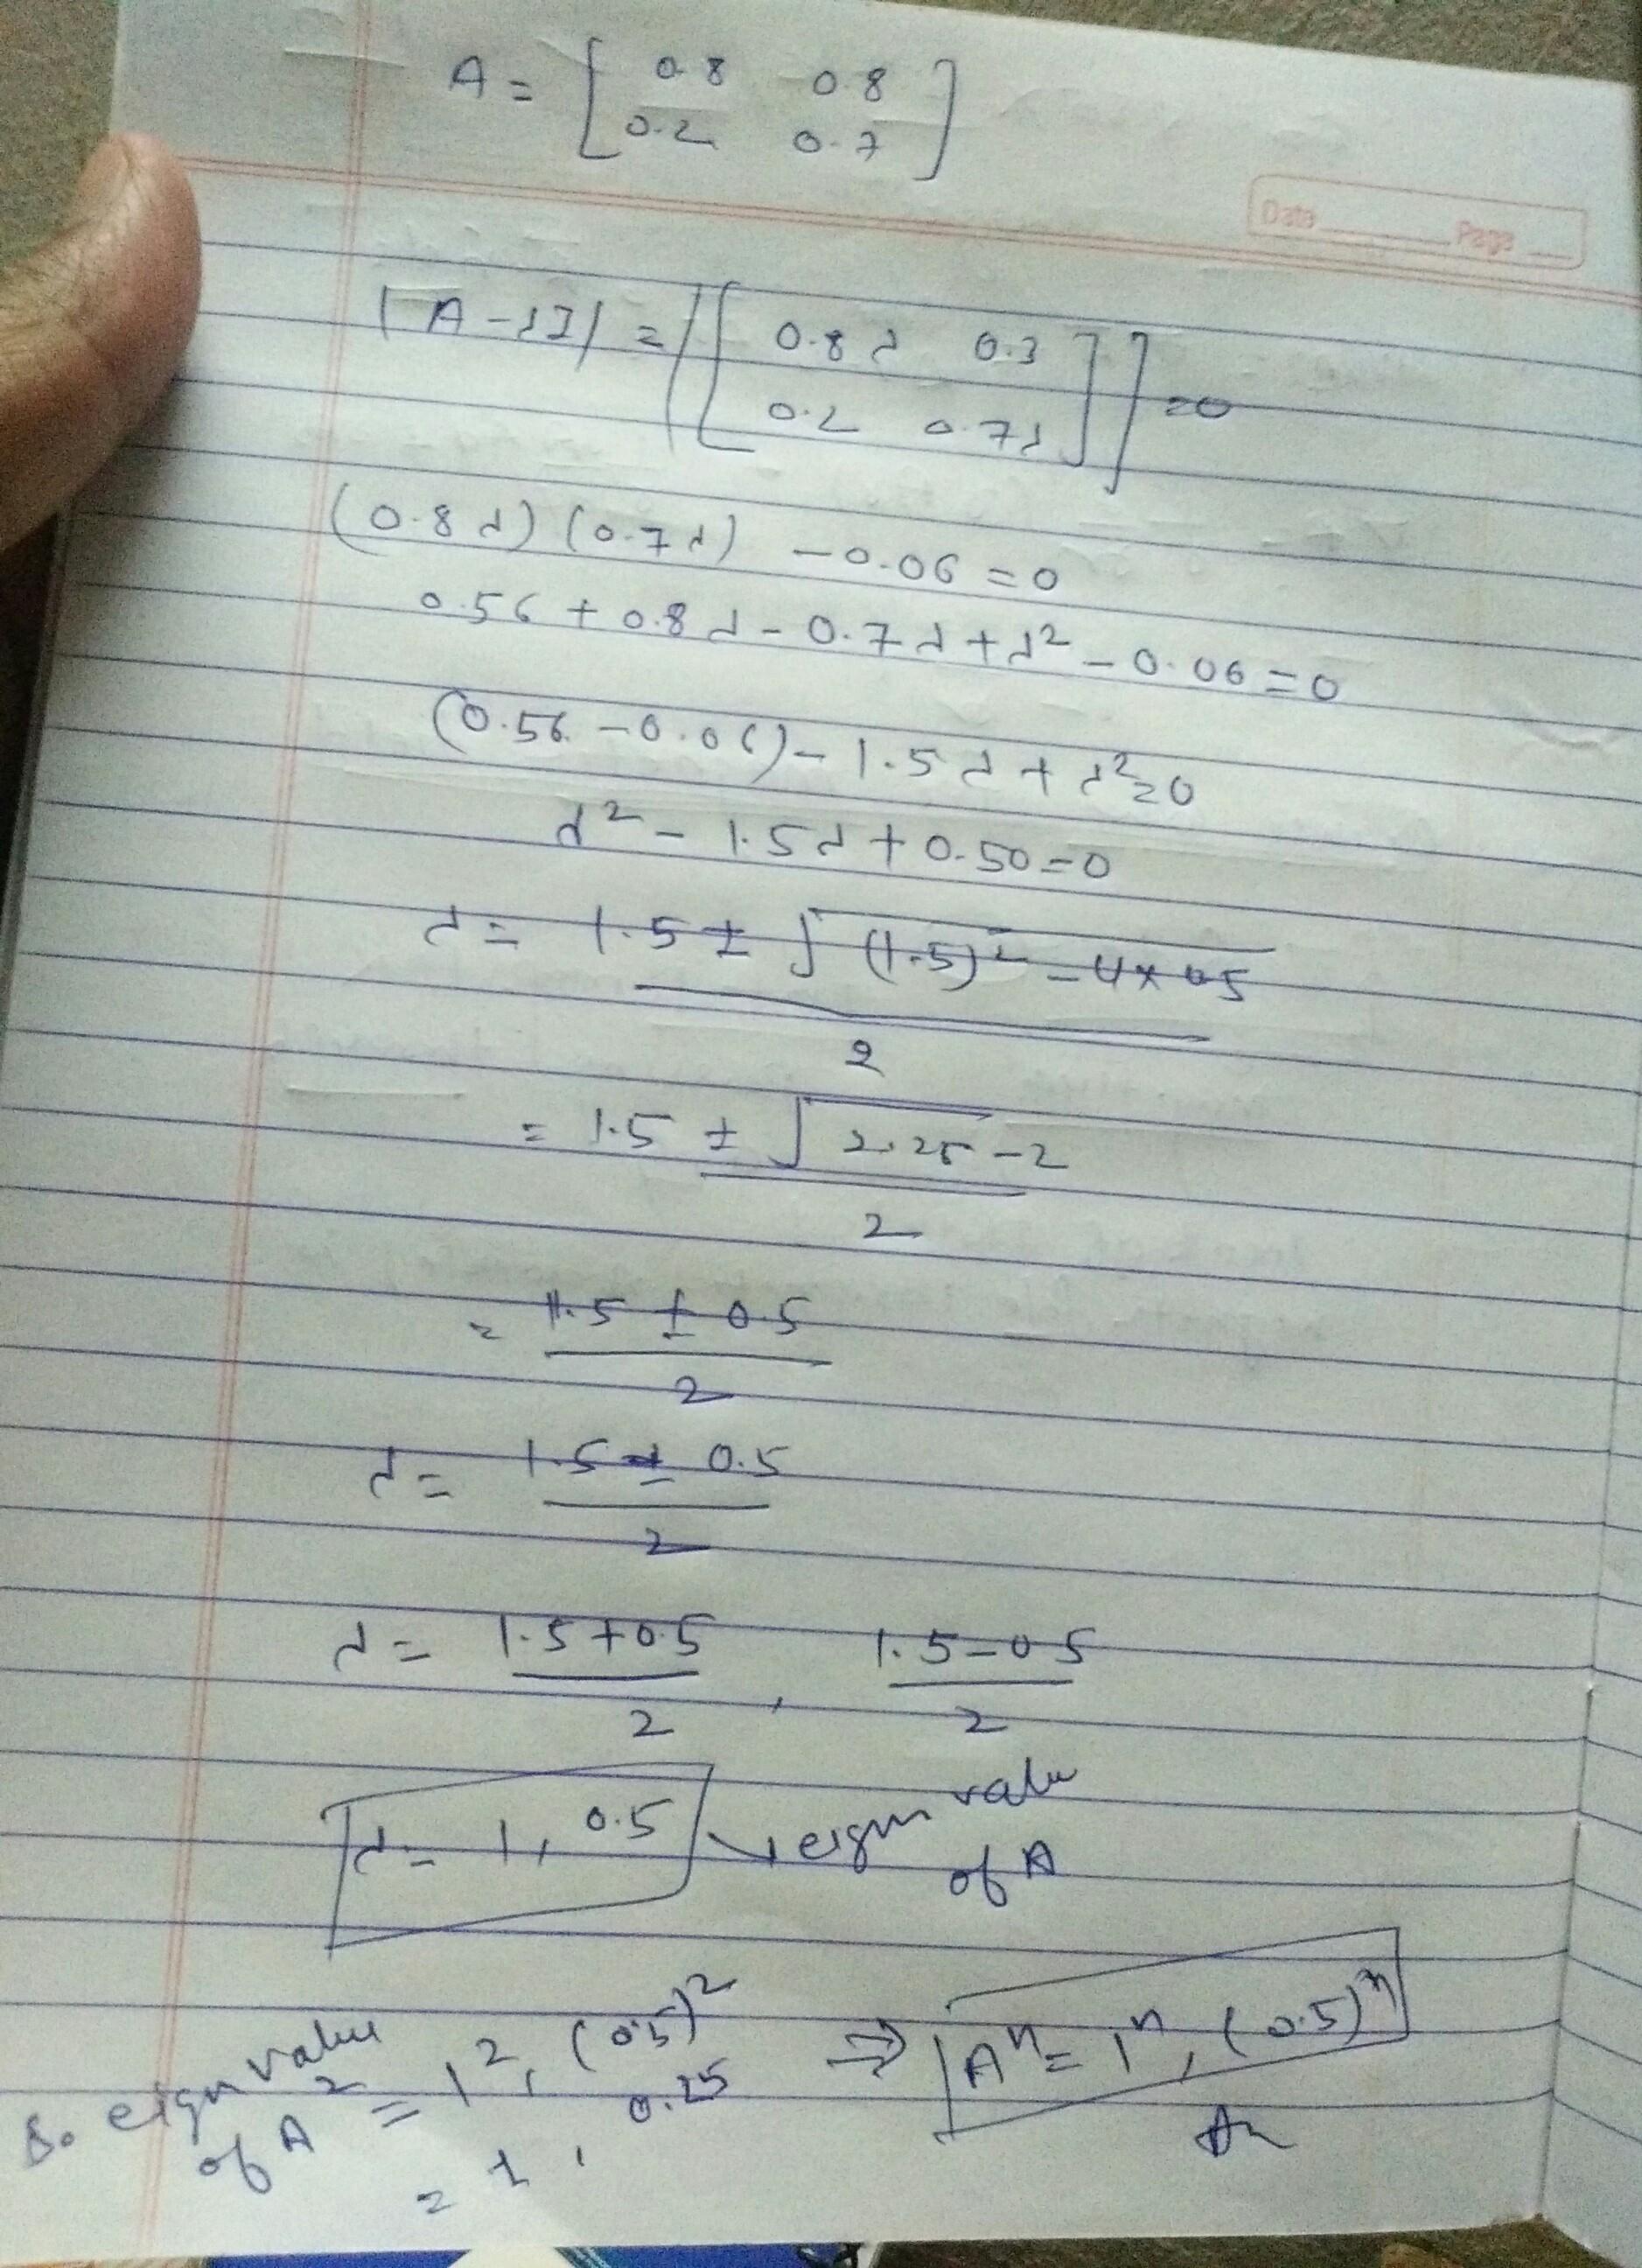 A = [ 0.8 0.8
0.2 0.7 ]
Date Page
|A-λI| = |[ 0.8λ 0.3
0.2 0.7λ ]] =0
(0.8λ) (0.7λ) -0.06 =0
0.56 + 0.8λ - 0.7λ + λ² - 0.06 =0
(0.56 -0.06) - 1.5λ + λ² =0
λ² - 1.5λ + 0.50 =0
λ = 1.5 ± √(1.5)² - 4×0.5
2
= 1.5 ± √2.25 -2
2
= 1.5 ± 0.5
2
λ = 1.5 ± 0.5
2
λ = 1.5+0.5 , 1.5-0.5
2 2
λ = 1, 0.5 → eign value
of A
So eign value
of A² = 1², (0.5)² ⇒ Aⁿ = 1ⁿ, (0.5)ⁿ
= 1, 0.25